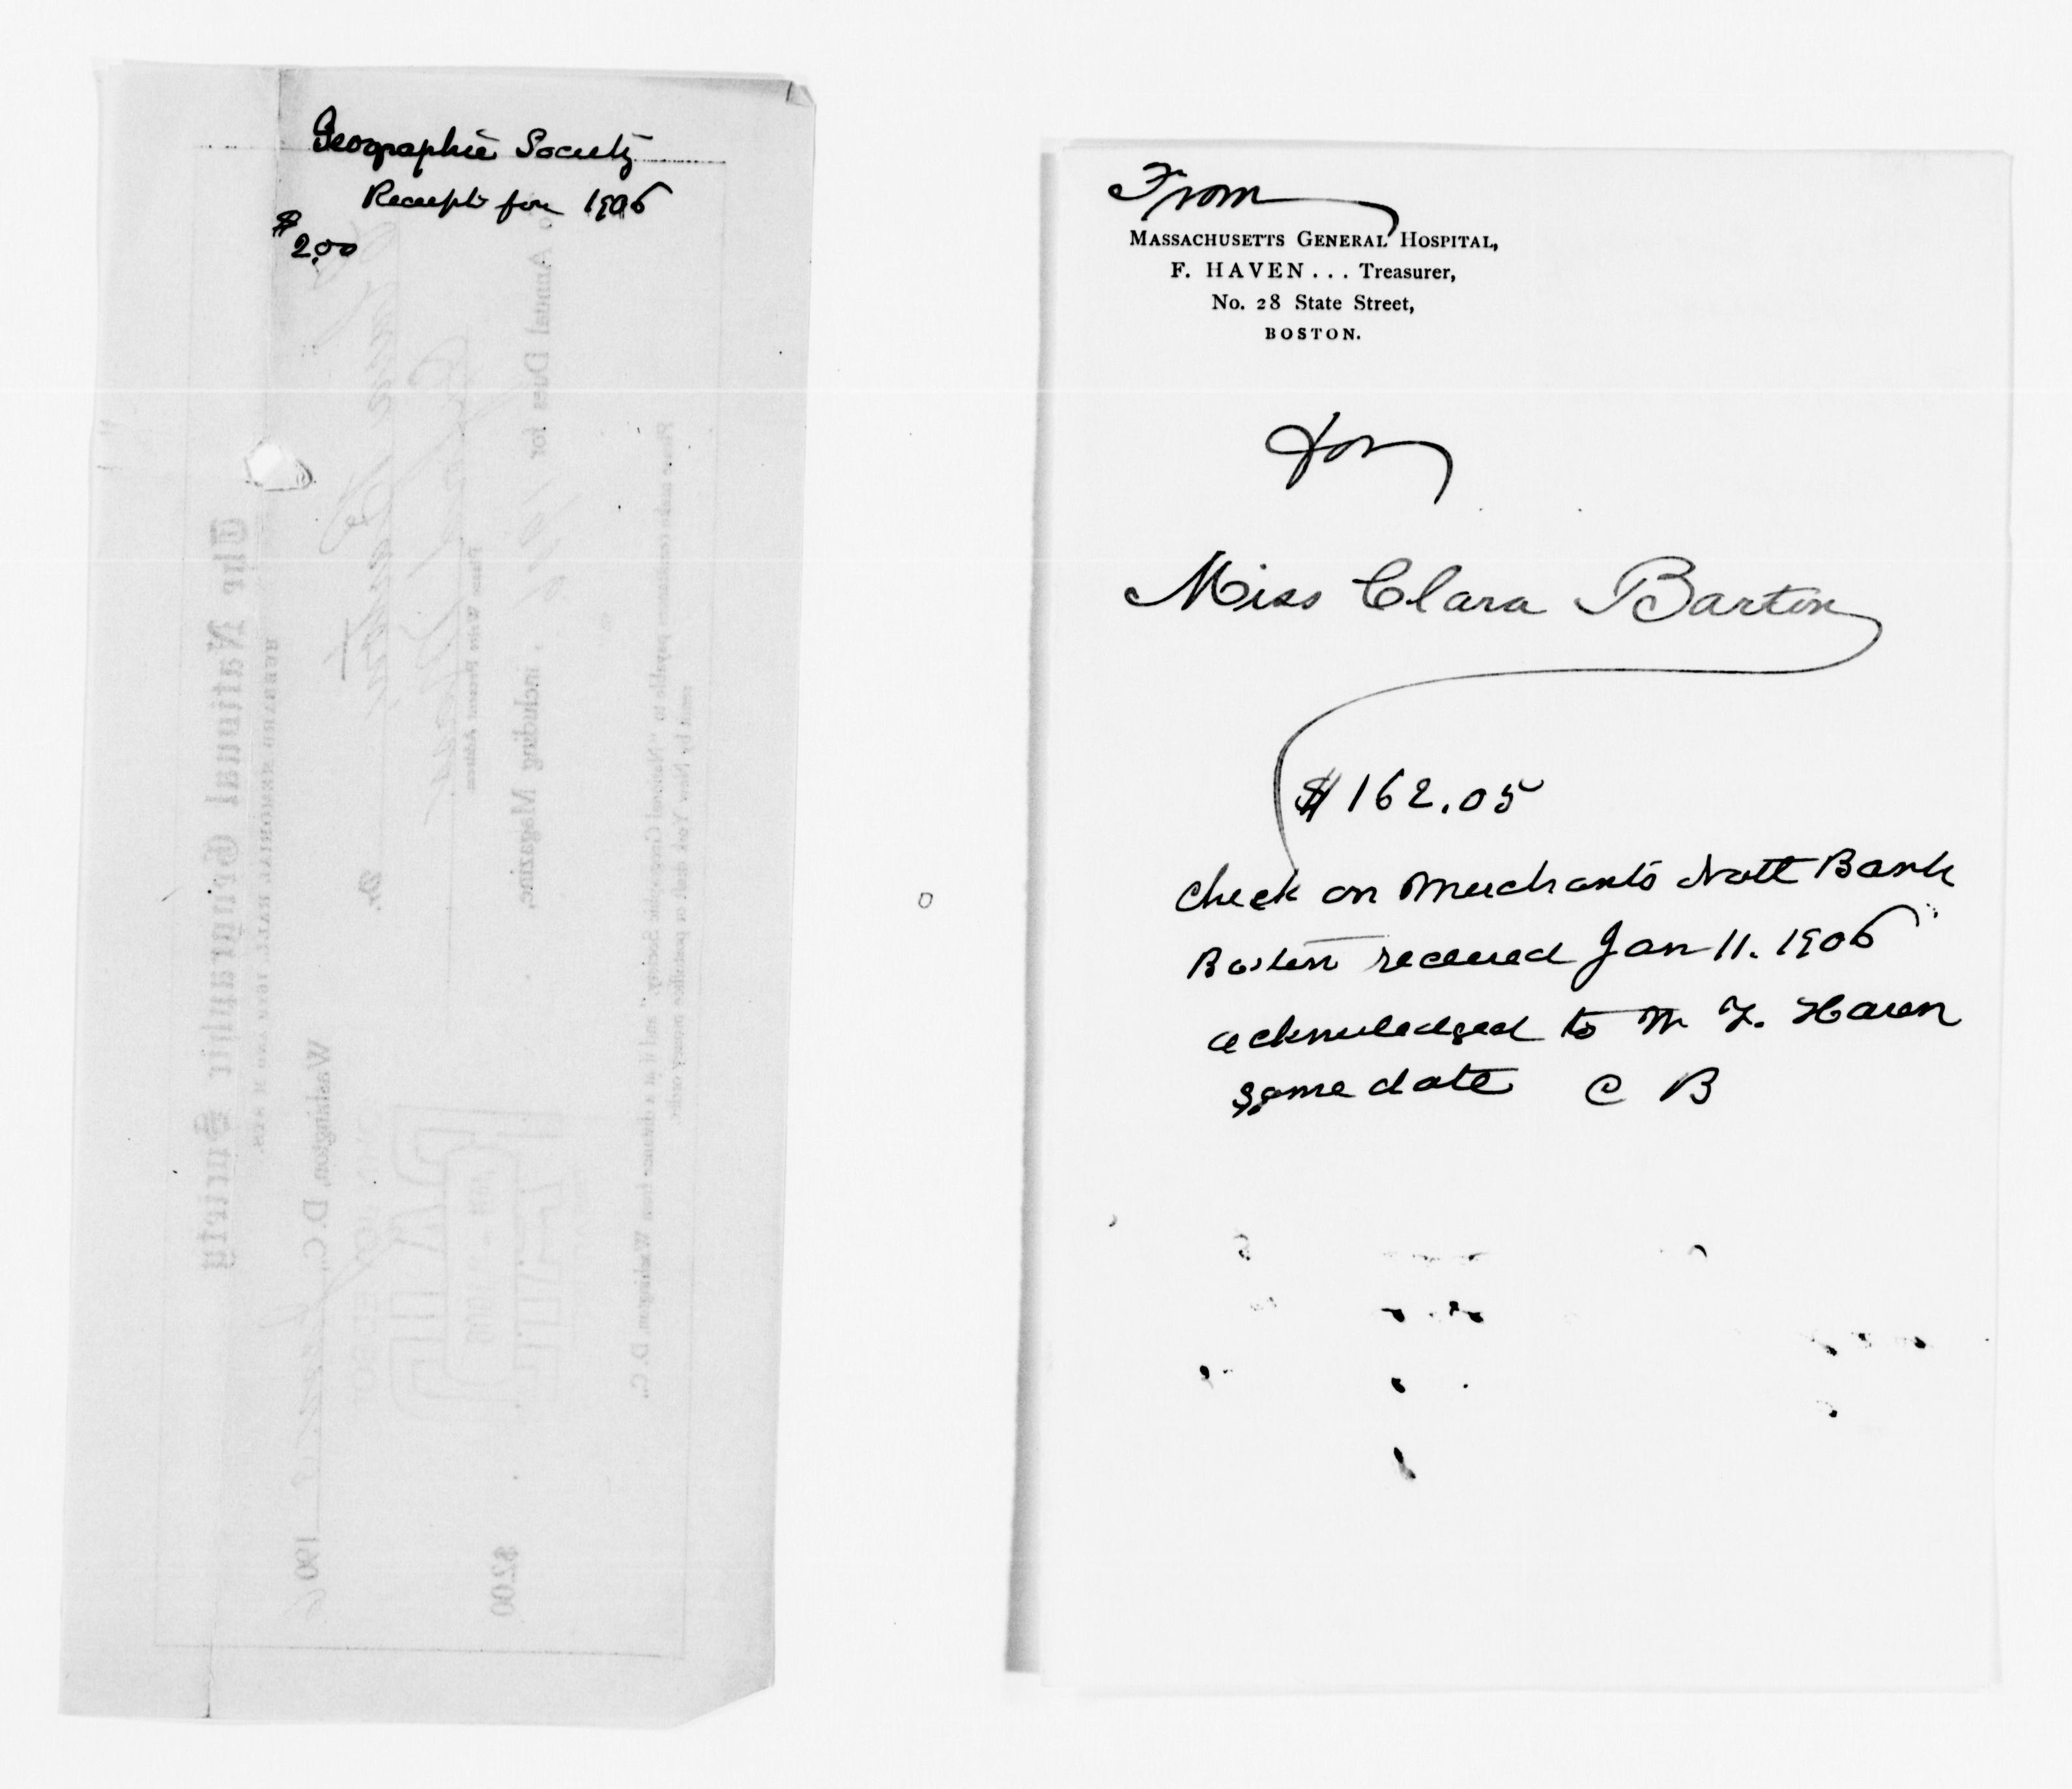 Geographic Society
Receipt for 1906
$
2.00
The National Geographic Society
HUBBARD MEMORIAL HALL, 16TH AND M STS.
Washington, D. C., 1906
Clara Barton
Dr.
Please Write Present Address
To Annual Dues for 1906, including Magazine, $2.00
Please make remittances payable to "National Geographic Society," and if at a distance from Washington, D. C.,
remit by New York draft or postoffice money order.
From
MASSACHUSETTS GENERAL HOSPITAL,
F. HAVEN... Treasurer,
No. 28 State Street,
BOSTON.
for
Miss Clara Barton
$162.05
check on Merchants Natl Bank
Boston received Jan 11. 1906
acknowledged to Mr F. Haven
same date C B